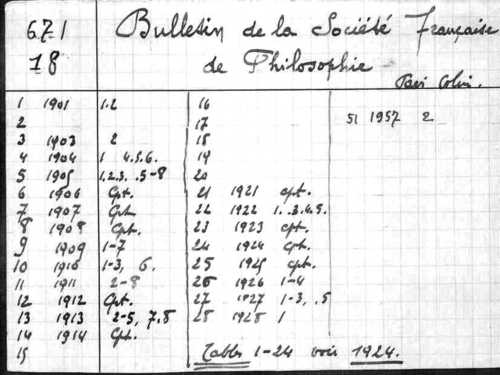 671 Bulletin de la Société Française
18 de Philosophie
Paris Colin.
1 1901 1.2
2
3 1903 2
4 1904 1 4.5.6.
5 1905 1.2.3. .5-8
6 1906 Cpt.
7 1907 Cpt.
8 1908 Cpt.
9 1909 1-7
10 1910 1-3, 6.
11 1911 2-8
12 1912 Cpt.
13 1913 2-5, 7.8
14 1914 Cpt.
15
16
17
18
19
20
21 1921 cpt.
22 1922 1. .3.4.5.
23 1923 cpt.
24 1924 cpt.
25 1925 cpt.
26 1926 1-4
27 1927 1-3, .5
28 1928 1
51 1957 2
Tables 1-24 voir 1924.